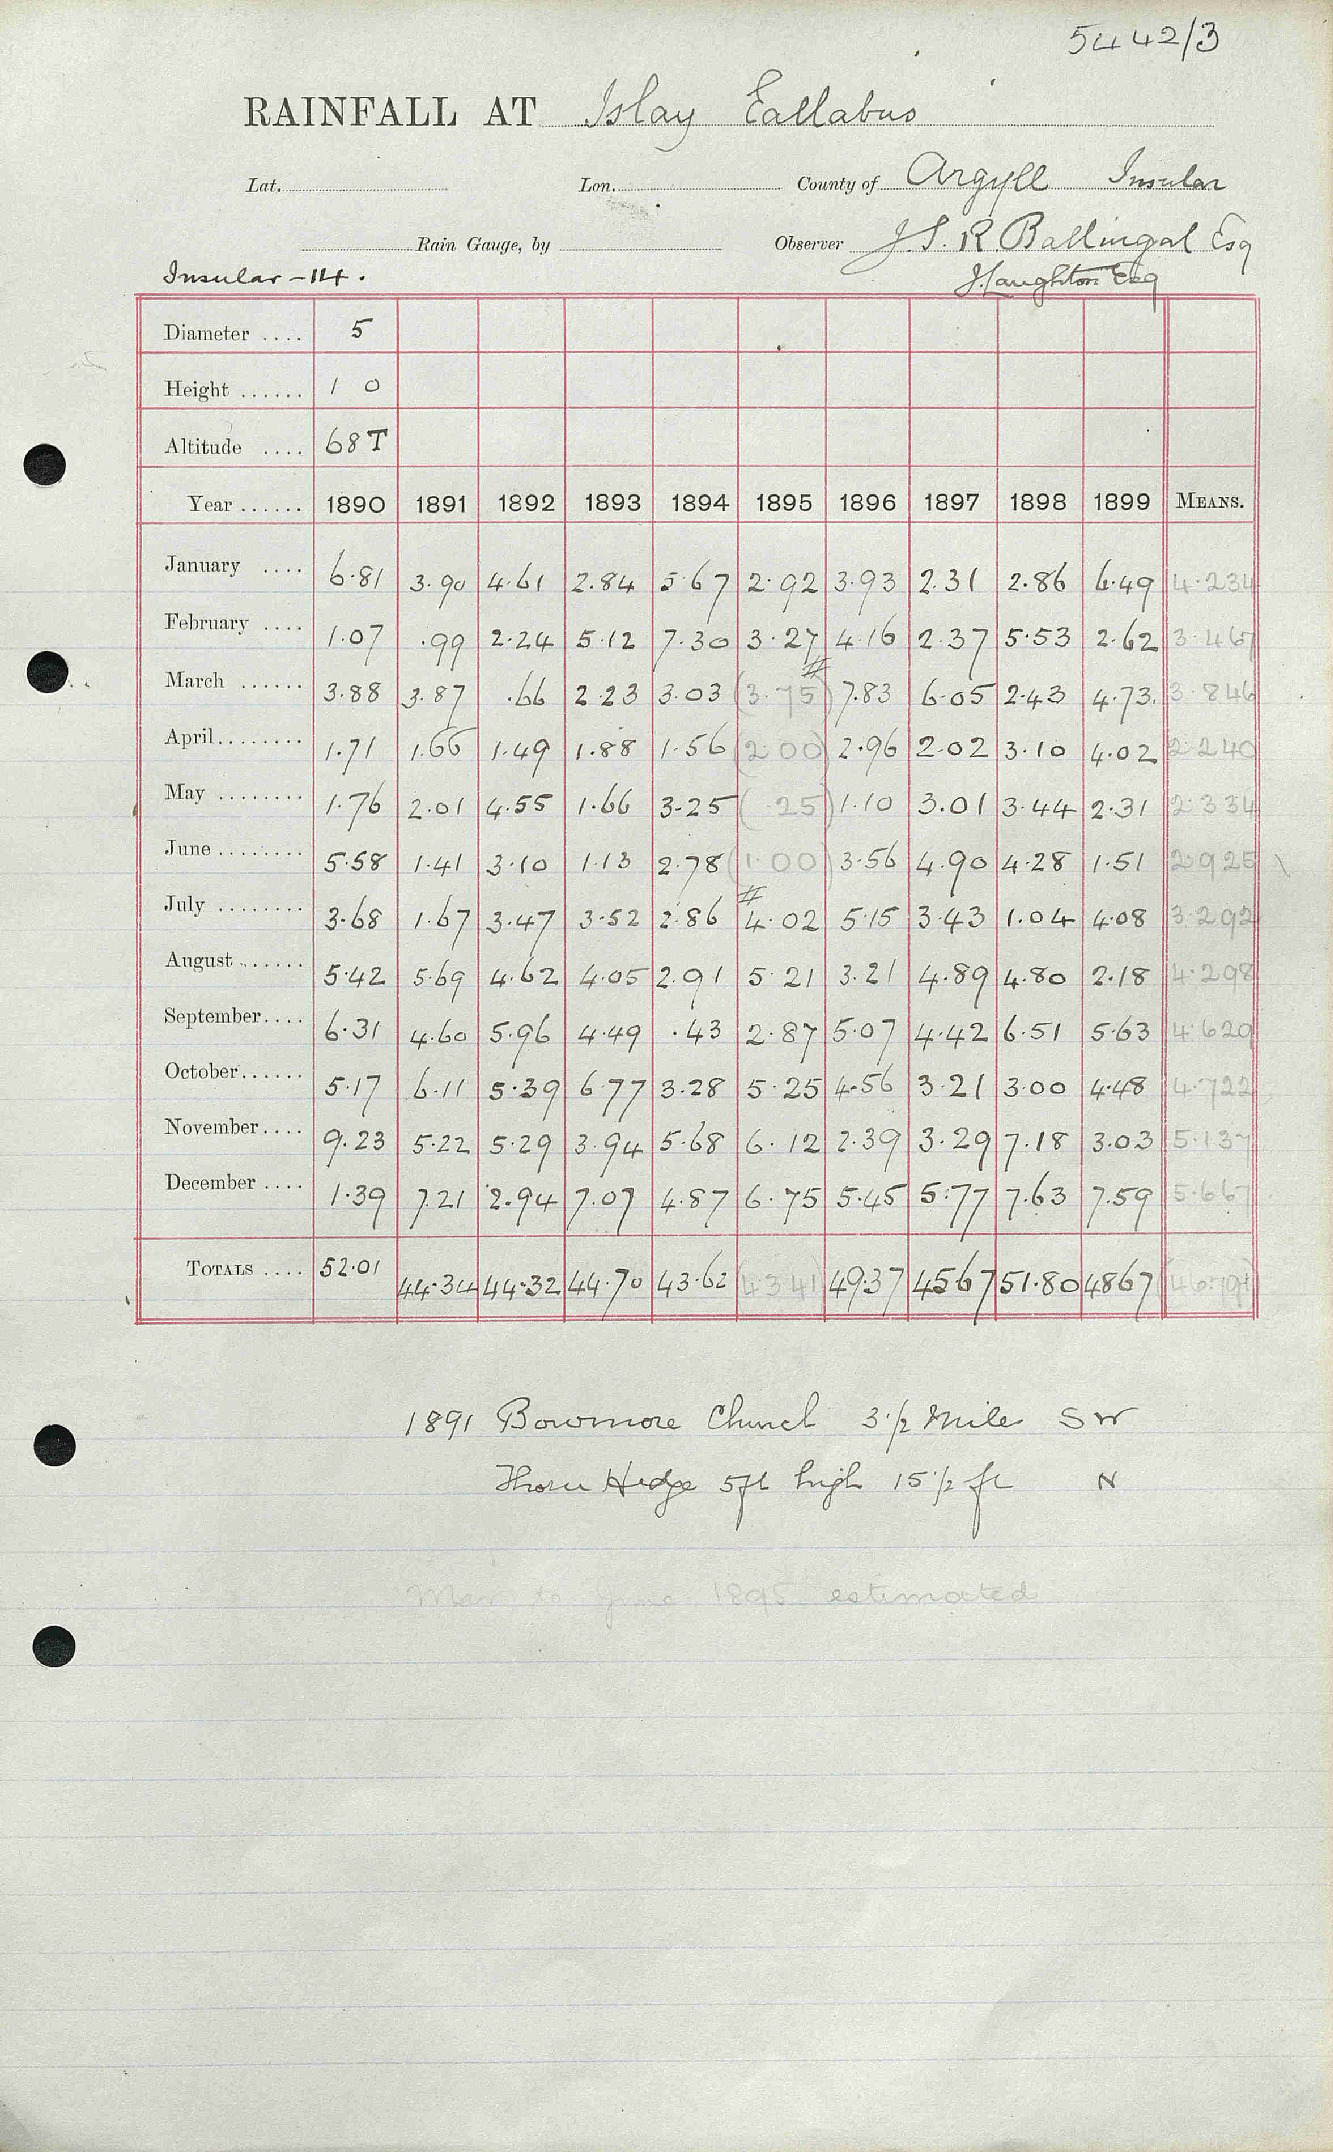 5442/3
RAINFALL AT Islay Eallabus
Lat. Lon. County of Argyll Insular
Rain Gauge, by Observer J. S. R Ballingal Esq
Insular - 14. J. Laughton Esq
Diameter .... 5
Height ...... 1 0
Altitude .... 68 T
Year ...... 1890 1891 1892 1893 1894 1895 1896 1897 1898 1899 MEANS.
January .... 6.81 3.90 4.61 2.84 5.67 2.92 3.93 2.31 2.86 6.49 4.234
February .... 1.07 .99 2.24 5.12 7.30 3.27 4.16 2.37 5.53 2.62 3.467
March ...... 3.88 3.87 .66 2.23 3.03 (3.75) 7.83 6.05 2.43 4.73 3.846
April........ 1.71 1.66 1.49 1.88 1.56 (2.00) 2.96 2.02 3.10 4.02 2.240
May ........ 1.76 2.01 4.55 1.66 3.25 ( .25) 1.10 3.01 3.44 2.31 2.334
June ........ 5.58 1.41 3.10 1.13 2.78 (1.00) 3.56 4.90 4.28 1.51 2.925
July ........ 3.68 1.67 3.47 3.52 2.86 # 4.02 5.15 3.43 1.04 4.08 3.292
August ...... 5.42 5.69 4.62 4.05 2.91 5.21 3.21 4.89 4.80 2.18 4.298
September.... 6.31 4.60 5.96 4.49 .43 2.87 5.07 4.42 6.51 5.63 4.629
October...... 5.17 6.11 5.39 6.77 3.28 5.25 4.56 3.21 3.00 4.48 4.722
November.... 9.23 5.22 5.29 3.94 5.68 6.12 2.39 3.29 7.18 3.03 5.137
December .... 1.39 7.21 2.94 7.07 4.87 6.75 5.45 5.77 7.63 7.59 5.667
TOTALS .... 52.01 44.34 44.32 44.70 43.62 (43.41) 49.37 45.67 51.80 48.67 (46.791)
1891 Bowmore Church 3 1/2 Mile S W
Thorn Hedge 5ft high 15 1/2 ft N
Mar to June 1895 estimated